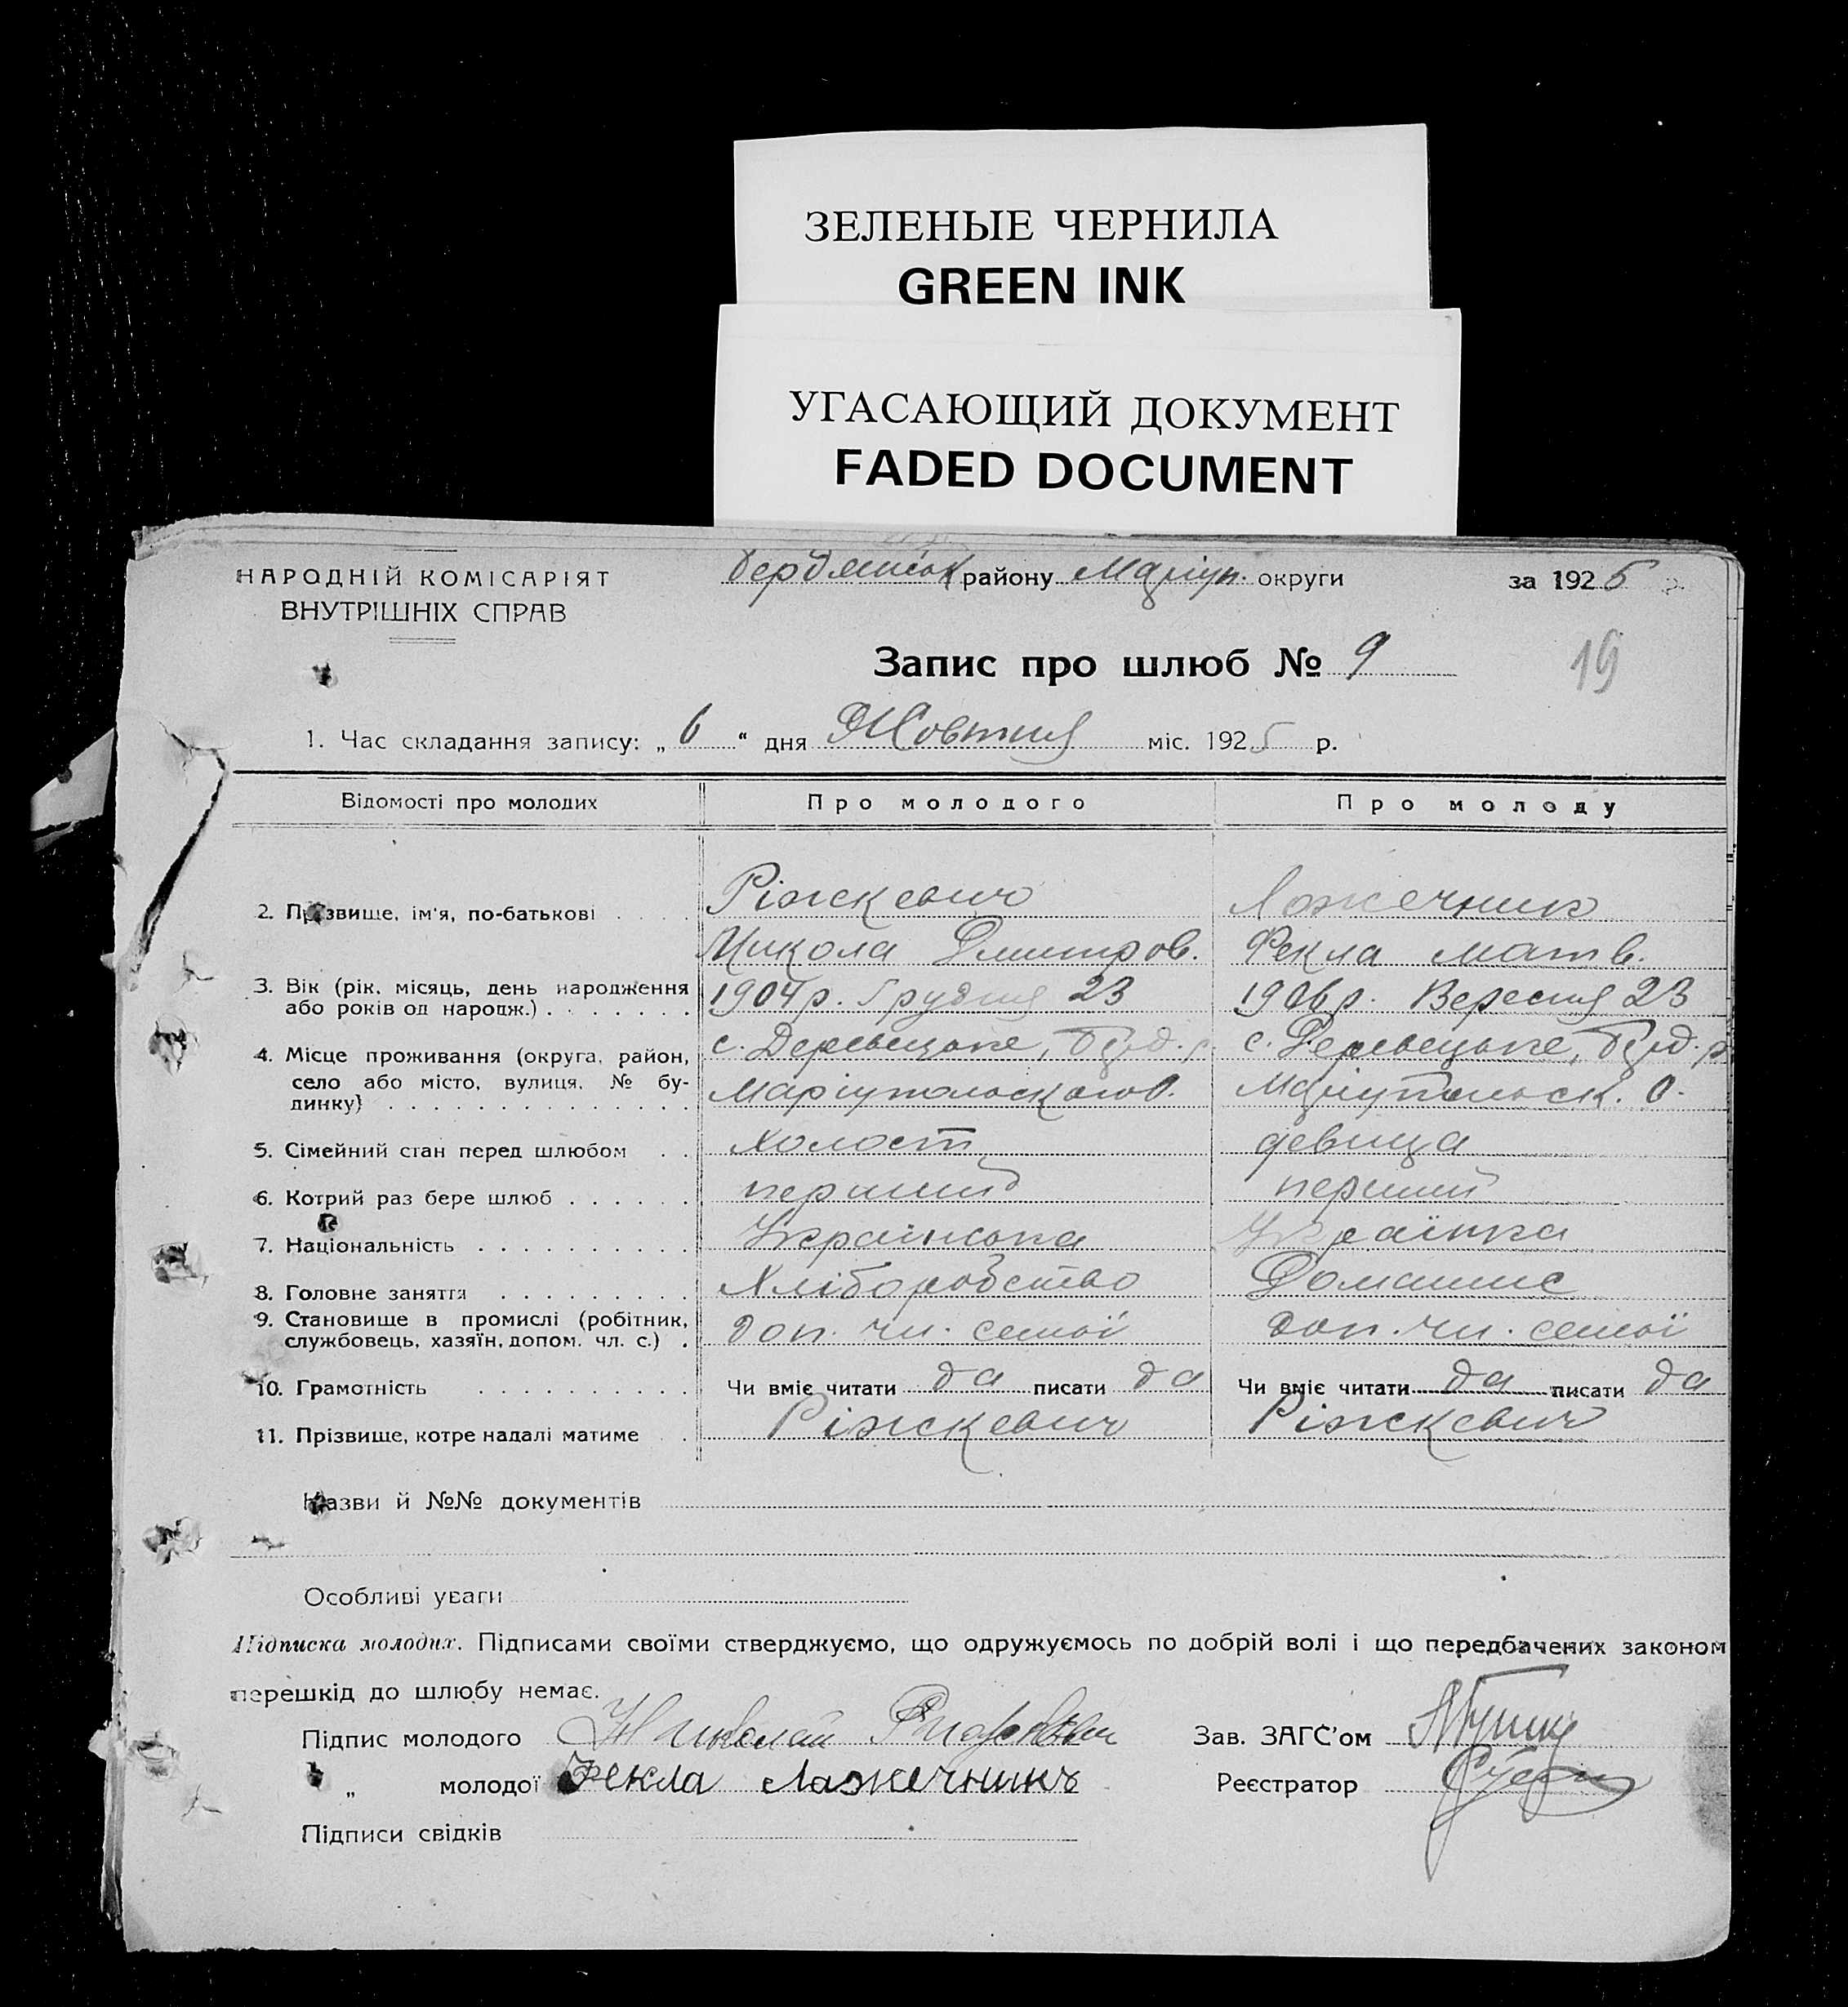 ЗЕЛЕНЫЕ ЧЕРНИЛА
GREEN INK
УГАСАЮЩИЙ ДОКУМЕНТ
FADED DOCUMENT
НАРОДНІЙ КОМІСАРІЯТ
ВНУТРІШНІХ СПРАВ
району Маріуп. округи за 1925 р.
Запис про шлюб № 9
19
1. Час складання запису: „6“ дня Жовтня міс. 1925 р.
Відомості про молодих Про молодого Про молоду
Ріжкевич Ложечник
2. Прізвище, ім'я, по-батькові
Микола Дмитров. Фекла Матв.
3. Вік (рік, місяць, день народження 1904 р. Грудня 23 1906 р. Вересня 23
або років од народж.)
4. Місце проживання (округа, район, с. Деревецьке, с. Деревецьке,
село або місто, вулиця, № бу-
динку) Маріупольського О. Маріупольск. О.
5. Сімейний стан перед шлюбом холост девица
6. Котрий раз бере шлюб перший перший
7. Національність Українська Українка
8. Головне заняття Хліборобство Домашнє
9. Становище в промислі (робітник,
службовець, хазяїн, допом. чл. с.) доп. чл. семьї доп. чл. семьї
10. Грамотність Чи вміє читати да писати да Чи вміє читати да писати да
11. Прізвище, котре надалі матиме Ріжкевич Ріжкевич
Назви й №№ документів
Особливі уваги
Підписка молодих. Підписами своїми стверджуємо, що одружуємось по добрій волі і що передбачених законом
перешкід до шлюбу немає.
Підпис молодого Николай Рижкевич Зав. ЗАГС'ом
„ молодої Фекла Лажечникъ Реєстратор
Підписи свідків